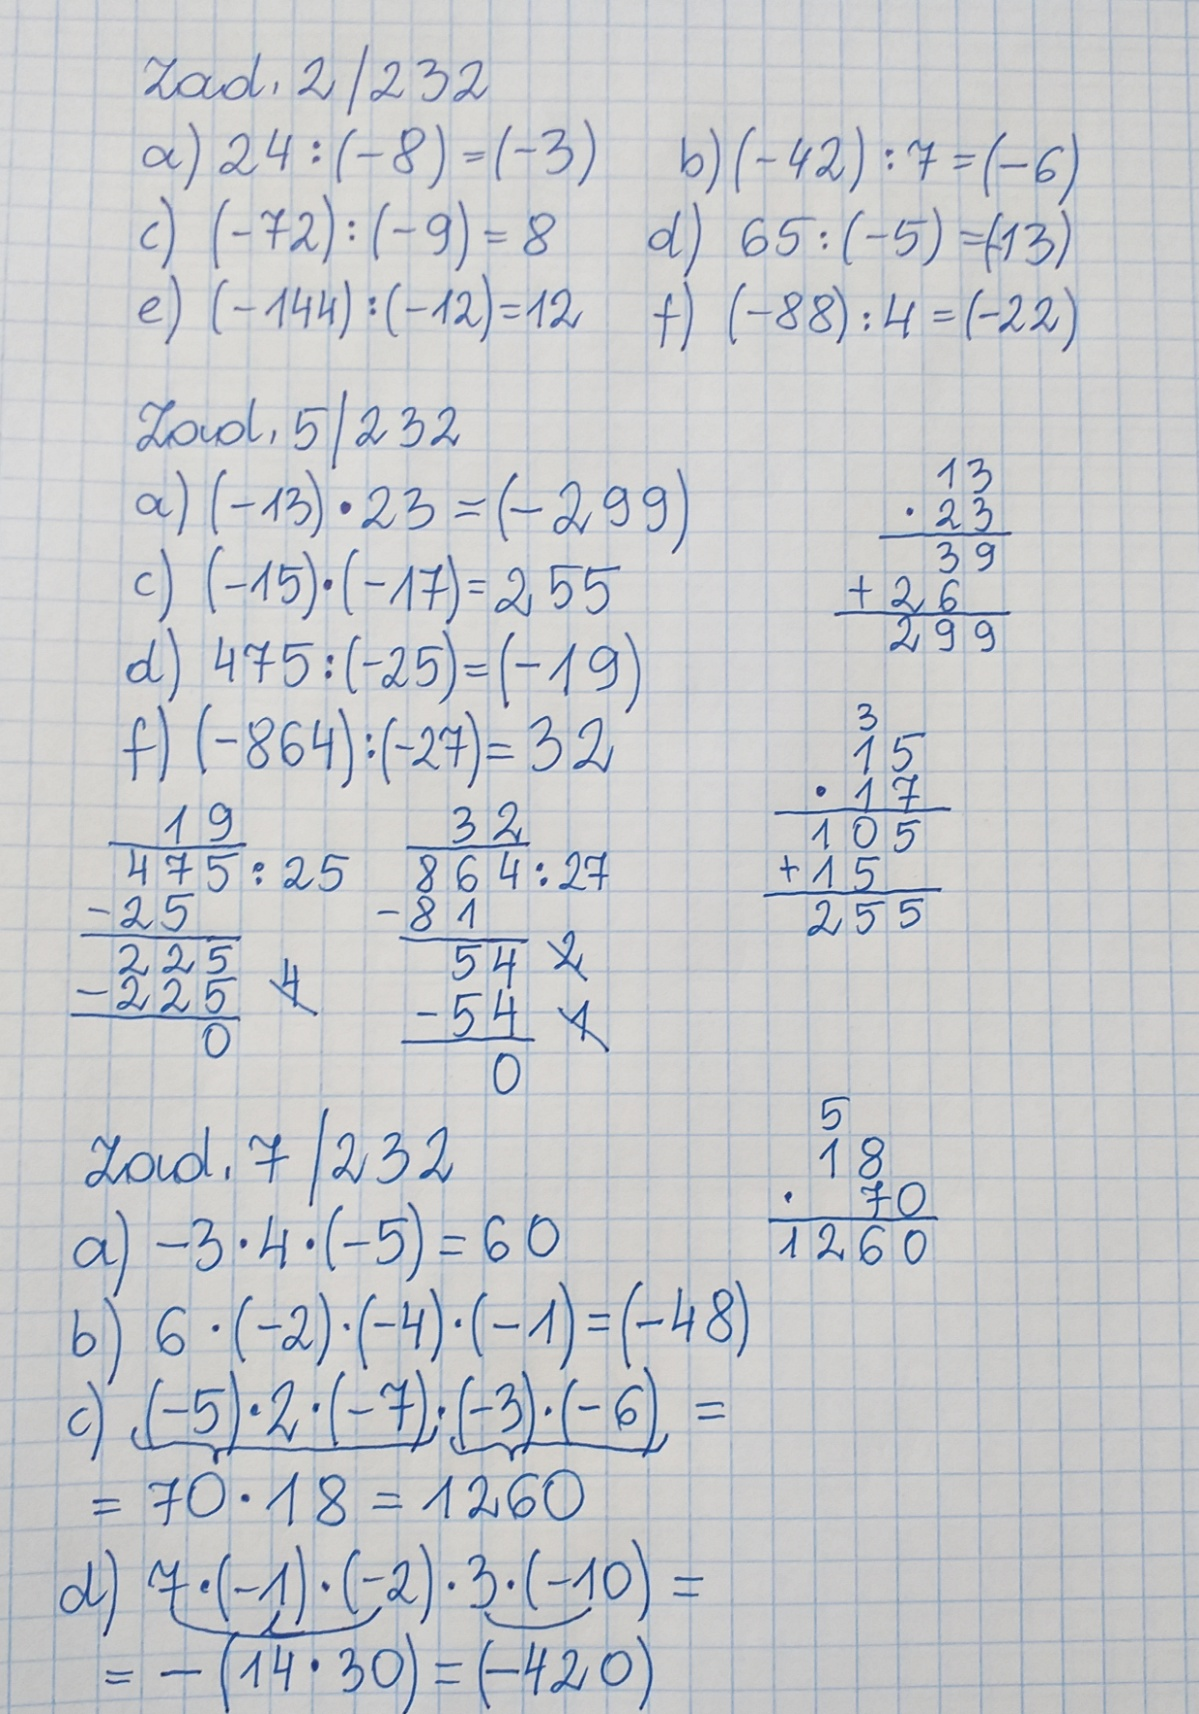 Zad. 2/232
a) 24 : (-8) = (-3) b) (-42) : 7 = (-6)
c) (-72) : (-9) = 8 d) 65 : (-5) = (-13)
e) (-144) : (-12) = 12 f) (-88) : 4 = (-22)
Zad. 5/232
a) (-13) · 23 = (-299)
c) (-15) · (-17) = 255
d) 475 : (-25) = (-19)
f) (-864) : (-27) = 32
13
· 23
39
+ 26
299
3
15
· 17
105
+ 15
255
19
475 : 25
- 25
225
- 225 4
0
32
864 : 27
- 81
54 2
- 54 1
0
Zad. 7/232
a) -3 · 4 · (-5) = 60
b) 6 · (-2) · (-4) · (-1) = (-48)
c) (-5) · 2 · (-7) · (-3) · (-6) =
= 70 · 18 = 1260
d) 7 · (-1) · (-2) · 3 · (-10) =
= - (14 · 30) = (-420)
5
18
· 70
1260